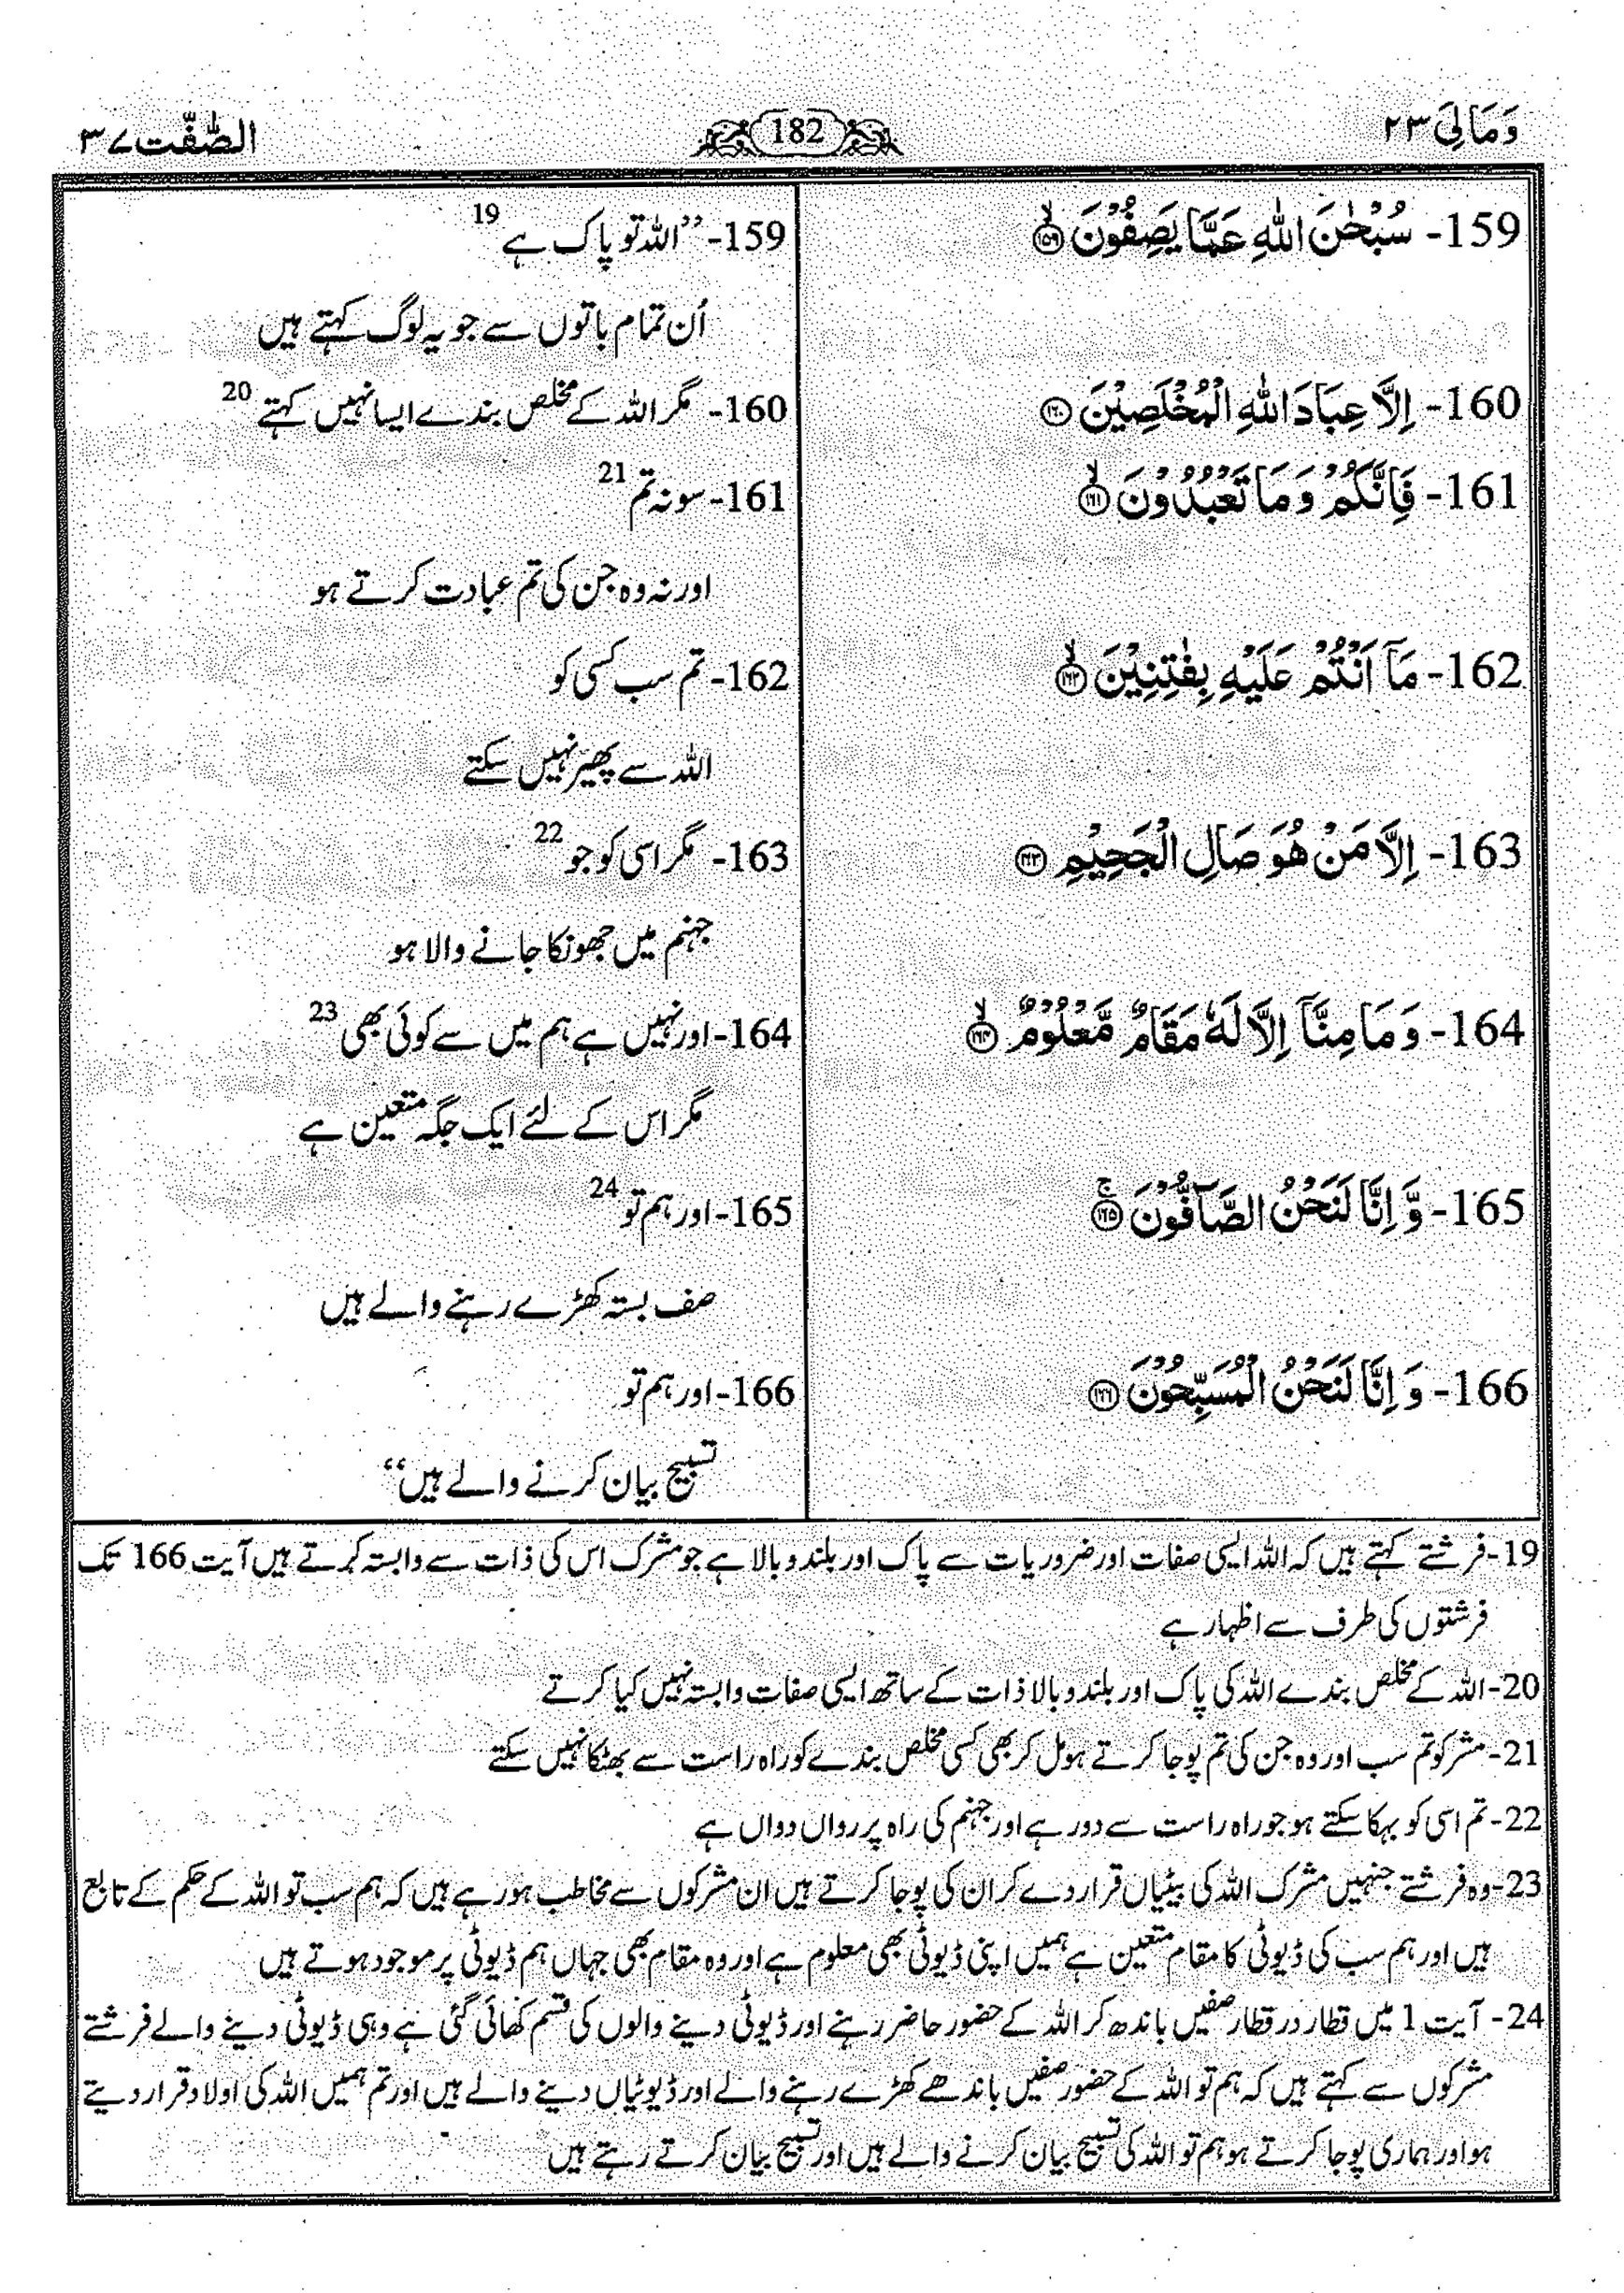 وَمَالِیَ ۲۳
182
الصّٰفّٰت ۳۷
159- سُبْحٰنَ اللّٰهِ عَمَّا یَصِفُوْنَ ۙ﴿۱۵۹﴾
160- اِلَّا عِبَادَ اللّٰهِ الْمُخْلَصِیْنَ ﴿۱۶۰﴾
161- فَاِنَّكُمْ وَ مَا تَعْبُدُوْنَ ۙ﴿۱۶۱﴾
162- مَاۤ اَنْتُمْ عَلَیْهِ بِفٰتِنِیْنَ ۙ﴿۱۶۲﴾
163- اِلَّا مَنْ هُوَ صَالِ الْجَحِیْمِ ﴿۱۶۳﴾
164- وَ مَا مِنَّاۤ اِلَّا لَهٗ مَقَامٌ مَّعْلُوْمٌ ۙ﴿۱۶۴﴾
165- وَّ اِنَّا لَنَحْنُ الصَّآفُّوْنَ ۚ﴿۱۶۵﴾
166- وَ اِنَّا لَنَحْنُ الْمُسَبِّحُوْنَ ﴿۱۶۶﴾
159- ”اللہ تو پاک ہے 19
اُن تمام باتوں سے جو یہ لوگ کہتے ہیں
160- مگر اللہ کے مخلص بندے ایسا نہیں کہتے 20
161- سو نہ تم 21
اور نہ وہ جن کی تم عبادت کرتے ہو
162- تم سب کسی کو
اللہ سے پھیر نہیں سکتے
163- مگر اسی کو جو 22
جہنم میں جھونکا جانے والا ہو
164- اور نہیں ہے ہم میں سے کوئی بھی 23
مگر اس کے لئے ایک جگہ متعین ہے
165- اور ہم تو 24
صف بستہ کھڑے رہنے والے ہیں
166- اور ہم تو
تسبیح بیان کرنے والے ہیں“
19- فرشتے کہتے ہیں کہ اللہ ایسی صفات اور ضروریات سے پاک اور بلند و بالا ہے جو مشرک اس کی ذات سے وابستہ کرتے ہیں آیت 166 تک
فرشتوں کی طرف سے اظہار ہے
20- اللہ کے مخلص بندے اللہ کی پاک اور بلند و بالا ذات کے ساتھ ایسی صفات وابستہ نہیں کیا کرتے
21- مشرکو تم سب اور وہ جن کی تم پوجا کرتے ہو مل کر بھی کسی مخلص بندے کو راہ راست سے بھٹکا نہیں سکتے
22- تم اسی کو بہکا سکتے ہو جو راہ راست سے دور ہے اور جہنم کی راہ پر رواں دواں ہے
23- وہ فرشتے جنہیں مشرک اللہ کی بیٹیاں قرار دے کر ان کی پوجا کرتے ہیں ان مشرکوں سے مخاطب ہو رہے ہیں کہ ہم سب تو اللہ کے حکم کے تابع
ہیں اور ہم سب کی ڈیوٹی کا مقام متعین ہے ہمیں اپنی ڈیوٹی بھی معلوم ہے اور وہ مقام بھی جہاں ہم ڈیوٹی پر موجود ہوتے ہیں
24- آیت 1 میں قطار در قطار صفیں باندھ کر اللہ کے حضور حاضر رہنے اور ڈیوٹی دینے والوں کی قسم کھائی گئی ہے وہی ڈیوٹی دینے والے فرشتے
مشرکوں سے کہتے ہیں کہ ہم تو اللہ کے حضور صفیں باندھے کھڑے رہنے والے اور ڈیوٹیاں دینے والے ہیں اور تم ہمیں اللہ کی اولاد قرار دیتے
ہو اور ہماری پوجا کرتے ہو ہم تو اللہ کی تسبیح بیان کرنے والے ہیں اور تسبیح بیان کرتے رہتے ہیں